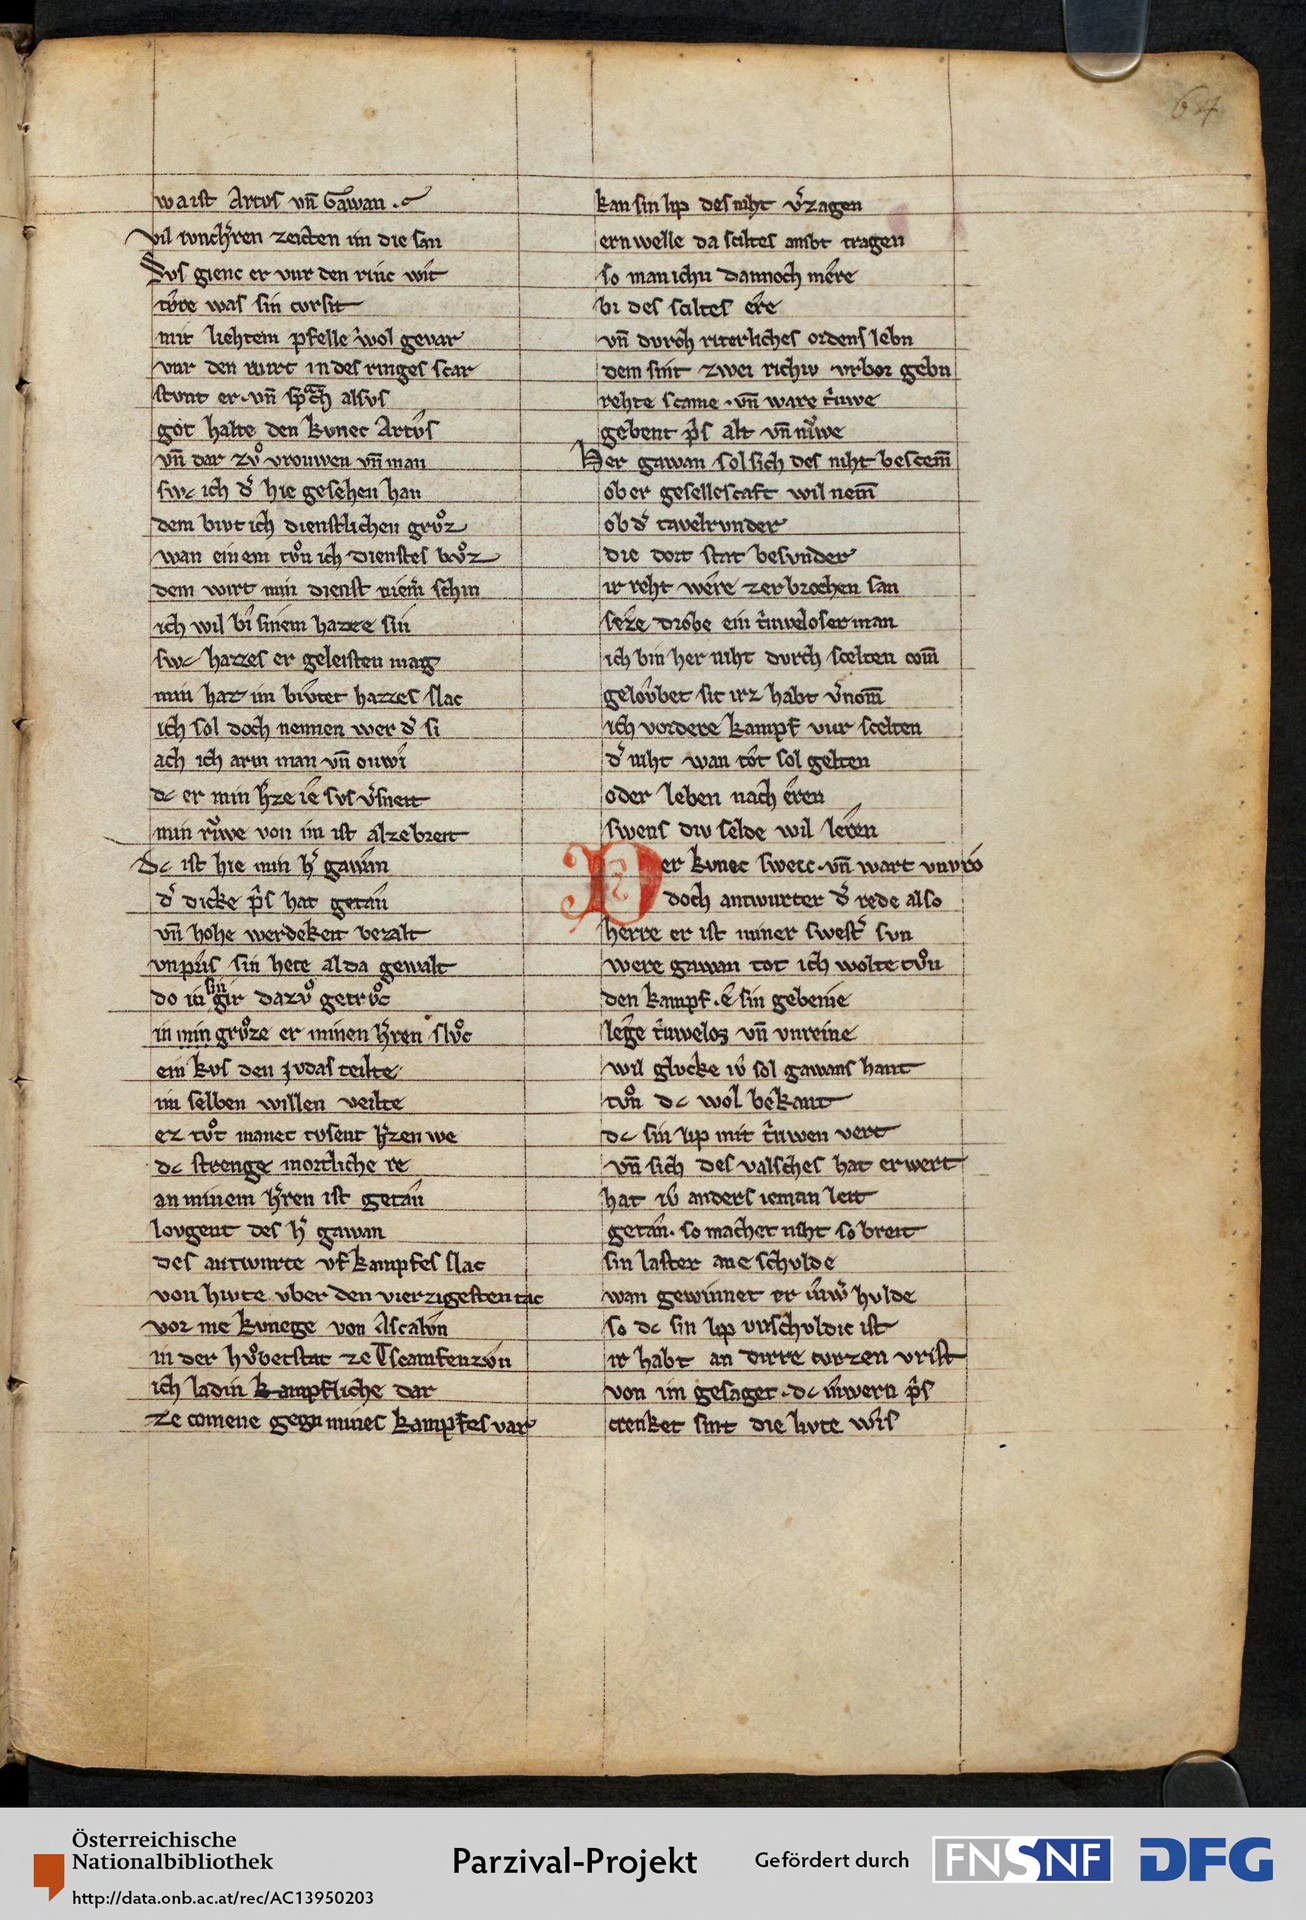 64
wa ist Artus vn̄ Gawan
vil iunch̄ren zeicten im die san
Sus gienc er vur den rinc wit
tv̂re was sin cursit
mit liehtem pfelle wol gevar
vur den wirt in des ringes scar
stvnt er · vn̄ sp̄ch alsvs
got halte den kvnec Artûs
vn̄ dar zvͦ vrouwen vn̄ man
swc ich d̄ hie gesehen han
dem biut ich dienstlichen grvͦz
wan einem tvͦn ich dienstes bvͦz
dem wirt min dienst niem̄ schin
ich wil bi sinem hazze sin
swc hazzes er geleisten mag
min haz im biutet hazzes slac
ich sol doch nennen wer d̄ si
ach ich arm man vn̄ ouwi
dc er min h̄ze ie svs v̄sneit
min riwe von im ist alze breit
Dc ist hie min h̄ gawan
d̄ dicke p̂s hat getan
vn̄ hohe werdekeit bezalt
vnpris sin hete al da gewalt
do in sin gir dazvͦ getrvͦc
in min grvͦze er minen h̄ren slvͦc
ein kvs den Judas teilte
im selben willen veilte
ez tvͦt manec tvsent h̄zen we
dc strenge mortliche re
an minem h̄ren ist getan
lovgent des h̄ gawan
des antwurte vf kampfes slac
von hivte vber den vierzigesten tac
vor me kvnege von Ascalûn
in der hvͦbetstat ze Tscanfenzvn
ich ladin kampfliche dar
ze comene gegn mines kampfes var
kan sin lip des niht v̄zagen
ern welle da sciltes ambt tragen
so man ichn dannoch mêre
bi des sciltes êre
vn̄ dvrch riterliches ordens lebn
dem sint zwei richiv vrbor gebn
rehte scame · vn̄ ware triwe
gebent p̂s alt vn̄ niwe
Her gawan sol sich des niht bescem̄
ob er gesellescaft wil nem̄
ob d̄ tavelrvnder
die dort stat besvnder
ir reht wêre zerbrochen san
sêze drobe ein triweloser man
ich bin her niht dvrch scelten com̄
geloubet sit irz habt v̄nom̄
ich vordere kampf vur scelten
d̄ niht wan tôt sol gelten
oder leben nach êren
swens div selde wil lêren
Der kvnec sweic · vn̄ wart vnvro
doch antwurter d̄ rede also
herre er ist miner swest̄ svn
were gawan tot ich wolte tvͦn
den kampf · ê sin gebenie
lêge triwelos vn̄ vnreine
wil glvcke iv̂ sol gawans hant
tvͦn dc wol bekant
dc sin lip mit triwen vert
vn̄ sich des valsches hat erwert
hat iv̂ anders ieman leit
getan · so machet niht so breit
sin laster ane schvlde
wan gewinnet er iwr̄ hvlde
so dc sin lip vnschvldic ist
ir habt an dirre curzen vrist
von im gesaget · dc iwern p̂s
crenket sint die livte wîs
Österreichische
Nationalbibliothek
http://data.onb.ac.at/rec/AC13950203
Parzival-Projekt
Gefördert durch
FNSNF
DFG